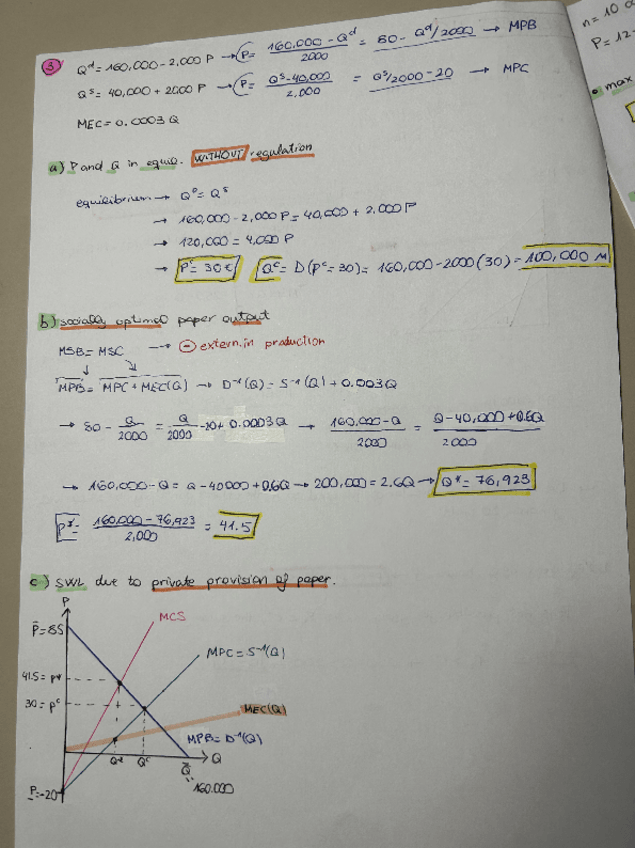 3
Q^d = 160,000 - 2,000 P → P = (160,000 - Q^d)/2000 = 80 - Q^d/2000 → MPB
Q^s = 40,000 + 2000 P → P = (Q^s - 40,000)/2,000 = Q^s/2000 - 20 → MPC
MEC = 0.0003 Q
a) P and Q in equil. WITHOUT regulation
equilibrium → Q^D = Q^s
→ 160,000 - 2,000 P = 40,000 + 2.000 P
→ 120,000 = 4,000 P
→ P^c = 30 € Q^c = D(P^c = 30) = 160,000 - 2000 (30) = 100,000 M
b) socially optimal paper output
MSB = MSC → ⊖ extern. in production
MPB = MPC + MEC(Q) → D^-1(Q) = S^-1(Q) + 0.003Q
→ 80 - Q/2000 = Q/2000 - 20 + 0.0003Q → (160,000 - Q)/2000 = (Q - 40,000 + 0.6Q)/2000
→ 160,000 - Q = Q - 40000 + 0.6Q → 200,000 = 2.6Q → Q* = 76,923
P* = (160,000 - 76,923)/2,000 = 41.5
c) SWL due to private provision of paper.
P
P̄ = 85
MCS
MPC = S^-1(Q)
41.5 = P*
30 = P^c
MEC(Q)
MPB = D^-1(Q)
Q* Q^c Q̄ Q
= 160.000
P = -20
n = 10
P = 12
• max